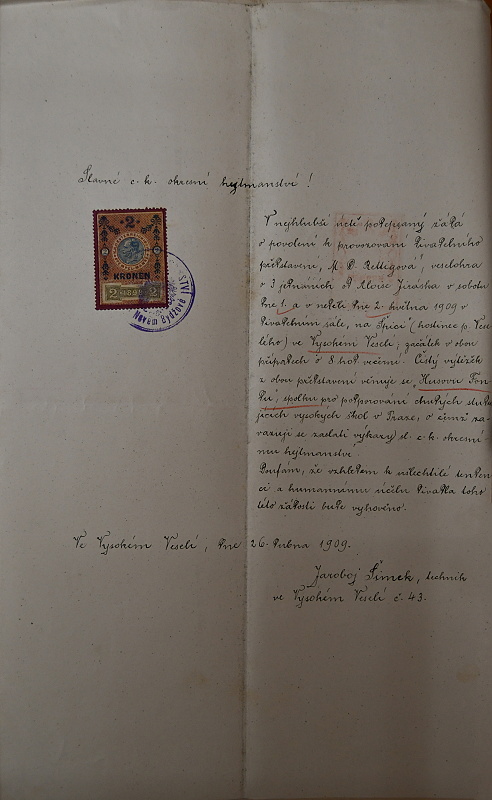 Slavné c. k. okresní hejtmanství!
2
KRONEN
2 1898 2
Novém Bydžově
V nejhlubší úctě podepsaný žádá
o povolení k provozování divadelního
představení „M. D. Rettigová“, veselohra
v 3 jednáních od Aloise Jiráska v sobotu
dne 1. a v neděli dne 2. května 1909 v
divadelním sále „na Špici“ (hostinec p. Vese-
lého) ve Vysokém Veselí; začátek v obou
případech o 8 hod. večerní. Čistý výtěžek
z obou představení věnuje se „Husovu fon-
du“, spolku pro podporování chudých studu-
jících vysokých škol v Praze, o čemž za-
vazuji se zaslati výkazy sl. c. k. okresní-
mu hejtmanství.
Doufám, že vzhledem k ušlechtilé tenden-
ci a humannímu účelu divadla toho
této žádosti bude vyhověno.
Ve Vysokém Veselí, dne 26. dubna 1909.
Jaroboj Šimek, technik
ve Vysokém Veselí č. 43.